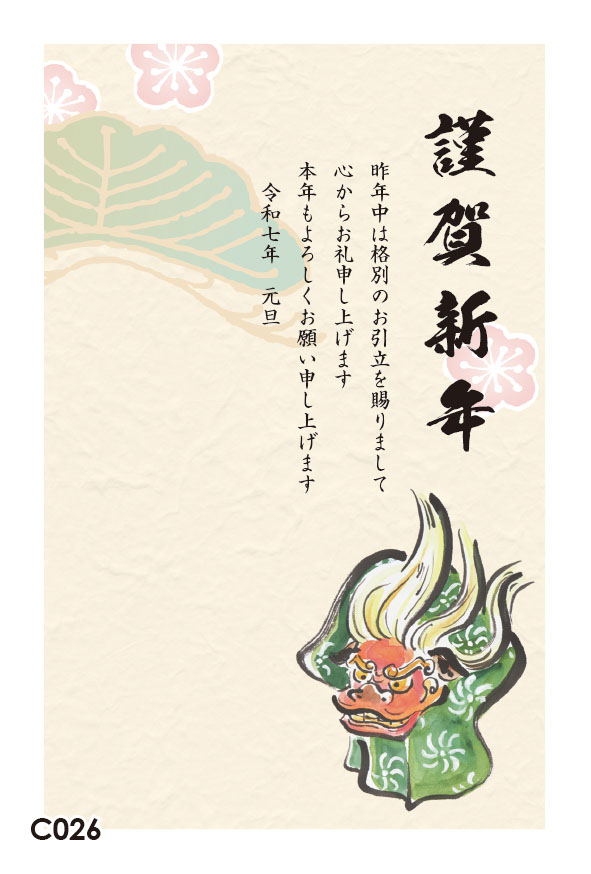 謹賀新年
昨年中は格別のお引立を賜りまして
心からお礼申し上げます
本年もよろしくお願い申し上げます
令和七年　元旦
C026